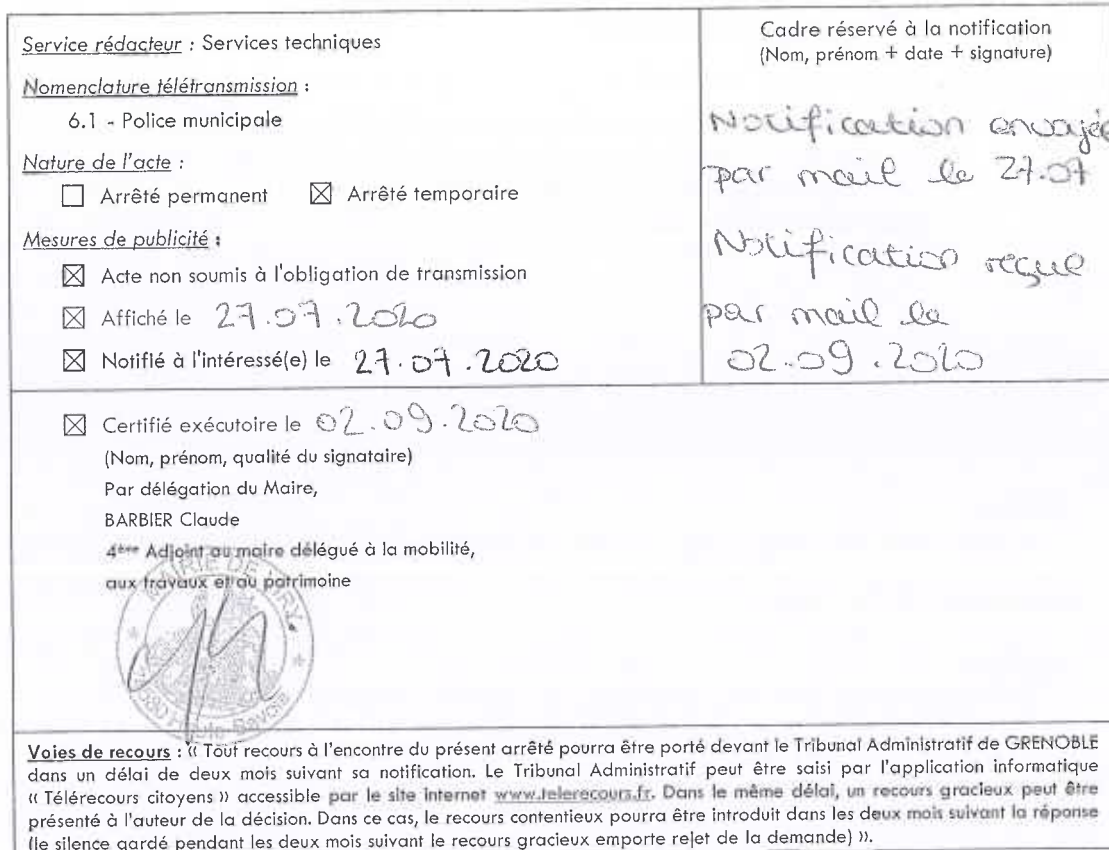 Service rédacteur : Services techniques
Nomenclature télétransmission :
6.1 - Police municipale
Nature de l'acte :
☐ Arrêté permanent ☒ Arrêté temporaire
Mesures de publicité :
☒ Acte non soumis à l'obligation de transmission
☒ Affiché le 27.07.2020
☒ Notifié à l'intéressé(e) le 27.07.2020
Cadre réservé à la notification
(Nom, prénom + date + signature)
Notification envoyée
par mail le 27.07
Notification reçue
par mail le
02.09.2020
☒ Certifié exécutoire le 02.09.2020
(Nom, prénom, qualité du signataire)
Par délégation du Maire,
BARBIER Claude
4ème Adjoint au maire délégué à la mobilité,
aux travaux et au patrimoine
MAIRIE DE VIRY
Haute-Savoie
Voies de recours : « Tout recours à l'encontre du présent arrêté pourra être porté devant le Tribunal Administratif de GRENOBLE
dans un délai de deux mois suivant sa notification. Le Tribunal Administratif peut être saisi par l'application informatique
« Télérecours citoyens » accessible par le site internet www.telerecours.fr. Dans le même délai, un recours gracieux peut être
présenté à l'auteur de la décision. Dans ce cas, le recours contentieux pourra être introduit dans les deux mois suivant la réponse
(le silence gardé pendant les deux mois suivant le recours gracieux emporte rejet de la demande) ».